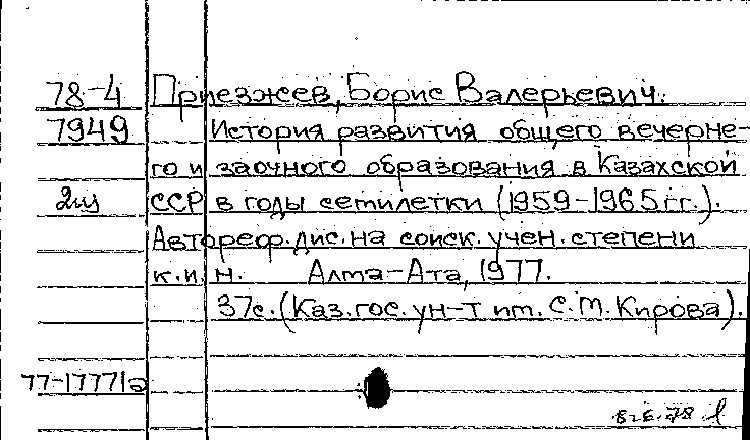 78-4 Приезжев, Борис Валерьевич.
7949 История развития общего вечерне-
го и заочного образования в Казахской
2 ССР в годы семилетки (1959-1965 гг.).
Автореф. дис. на соиск. учен. степени
к.и.н. Алма-Ата, 1977.
37с. (Каз.гос.ун-т им. С.М. Кирова).
77-17771а